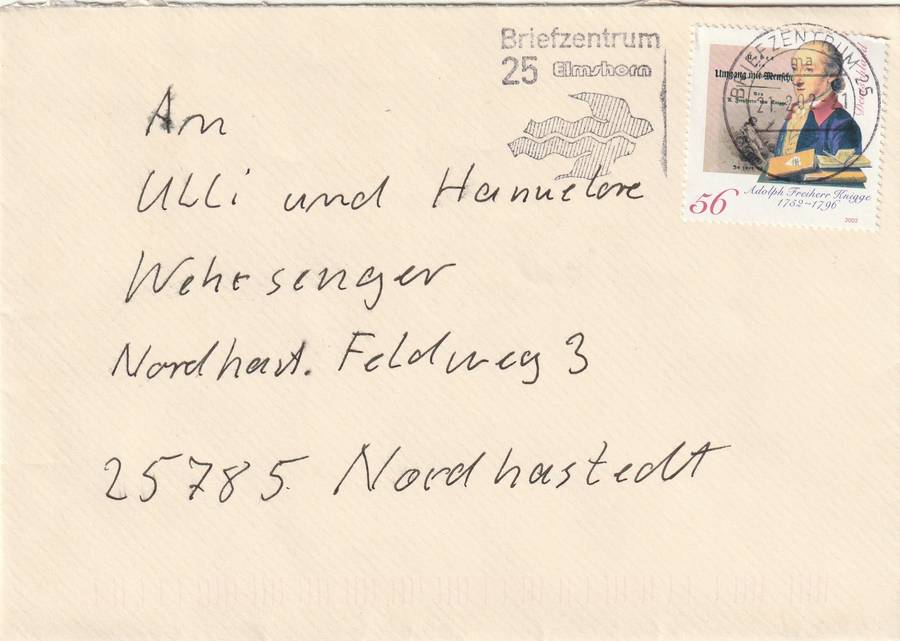 Briefzentrum
25 Elmshorn
BRIEFZENTRUM 25
ma
21
Ueber
Umgang mit Mensche
Deutschland
56
Adolph Freiherr Knigge
1752–1796
2002
An
Ulli und Hannelore
Wehrsenger
Nordhast. Feldweg 3
25785 Nordhastedt